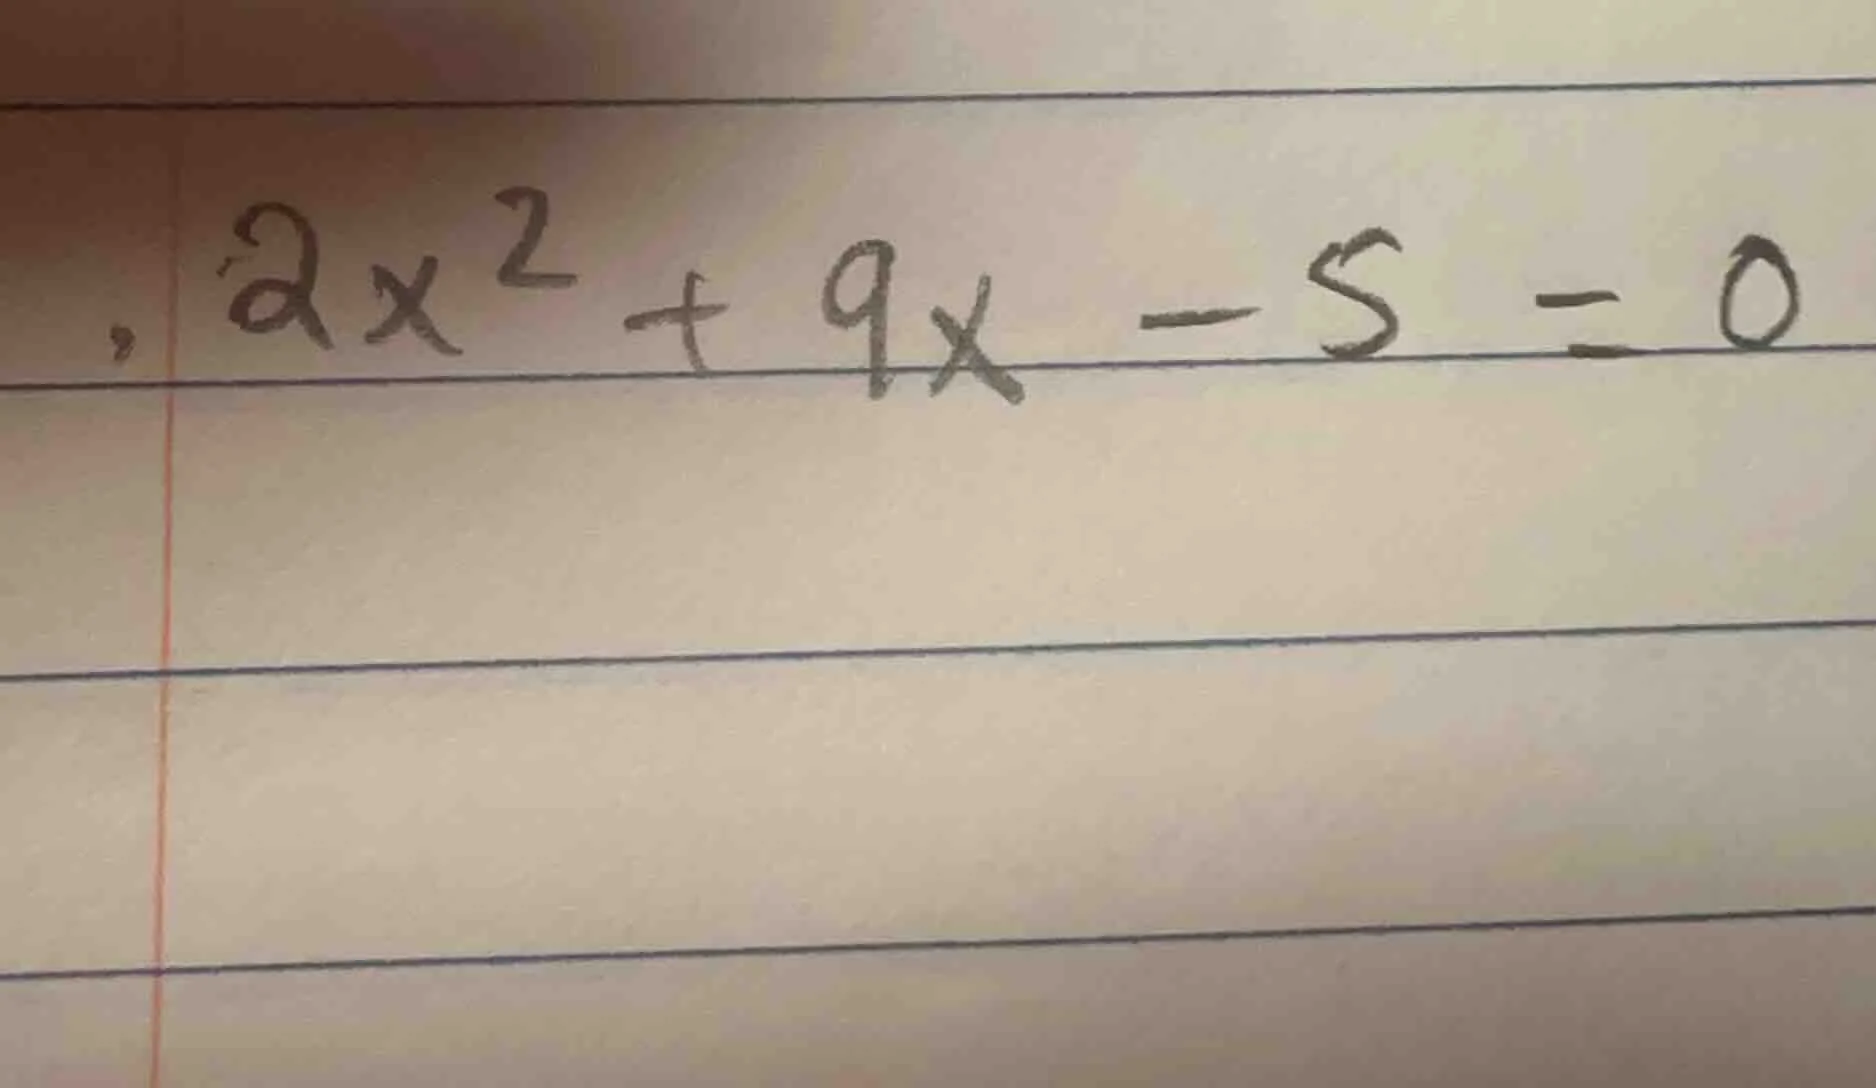 . 2x² + 9x - 5 = 0